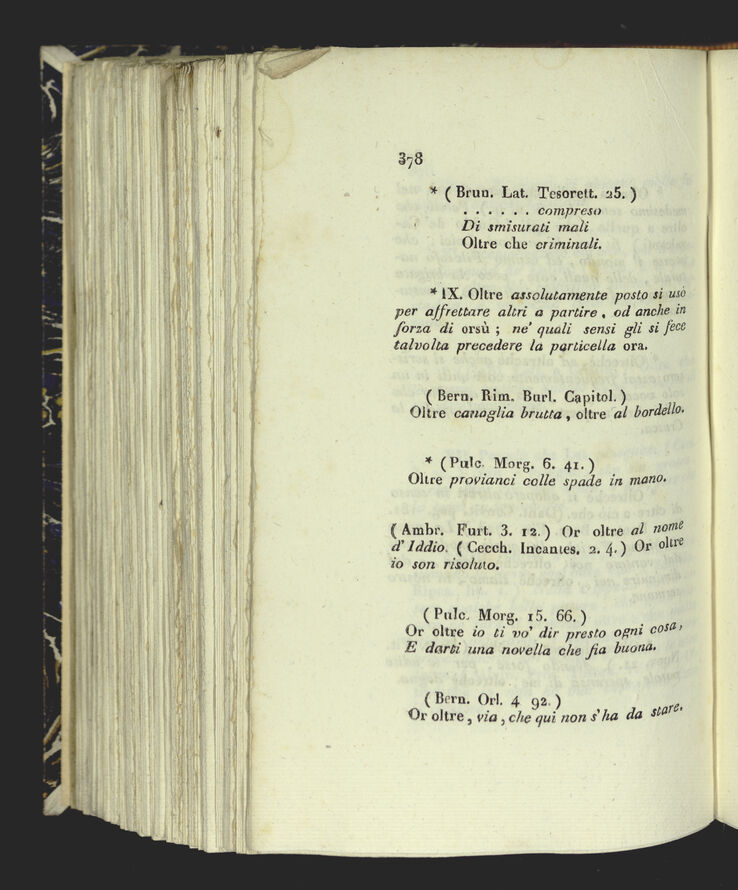 378
* ( Brun. Lat. Tesorett. 25. )
. . . . . . compreso
Di smisurati mali
Oltre che criminali.
* IX. Oltre assolutamente posto si usò
per affrettare altri a partire, od anche in
forza di orsù ; ne' quali sensi gli si fece
talvolta precedere la particella ora.
( Bern. Rim. Burl. Capitol. )
Oltre canaglia brutta, oltre al bordello.
* ( Pulc. Morg. 6. 41. )
Oltre provianci colle spade in mano.
( Ambr. Furt. 3. 12. ) Or oltre al nome
d'Iddio. ( Cecch. Incantes. 2. 4. ) Or oltre
io son risoluto.
( Pulc. Morg. 15. 66. )
Or oltre io ti vo' dir presto ogni cosa,
E darti una novella che fia buona.
( Bern. Orl. 4 92. )
Or oltre, via, che qui non s'ha da stare.